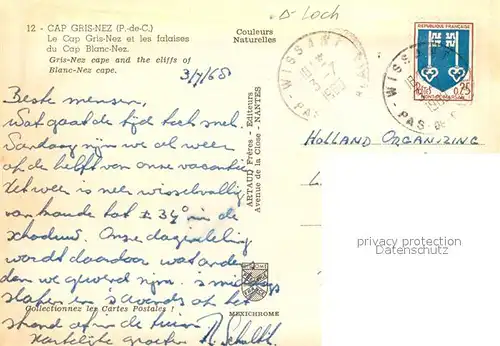 12 - CAP GRIS-NEZ (P.-de-C.)
Le Cap Gris-Nez et les falaises
du Cap Blanc-Nez.
Gris-Nez cape and the cliffs of
Blanc-Nez cape.
Couleurs
Naturelles
Loch
3/7/68
WISSANT
PAS
REPUBLIQUE FRANÇAISE
0,25
POSTES
MONT-DE-MARSAN
WISSANT
PAS DE C
HOLLAND ORGANIZING
Beste mensen,
Wat gaat de tijd toch snel.
Vandaag zijn we al weer
op de helft van onze vacantie
Het weer is zeer wisselvallig
van koude tot ± 34° in de
schaduw. Onze dagindeling
wordt daardoor wat anders
dan we gewend zijn. 's middags
slapen en 's avonds op het
strand of in de tuin.
Hartelijke groeten
ARTAUD Frères - Editeurs
Avenue de la Close - NANTES
Collectionnez les Cartes Postales !
FRANCE
MEXICHROME
privacy protection
Datenschutz